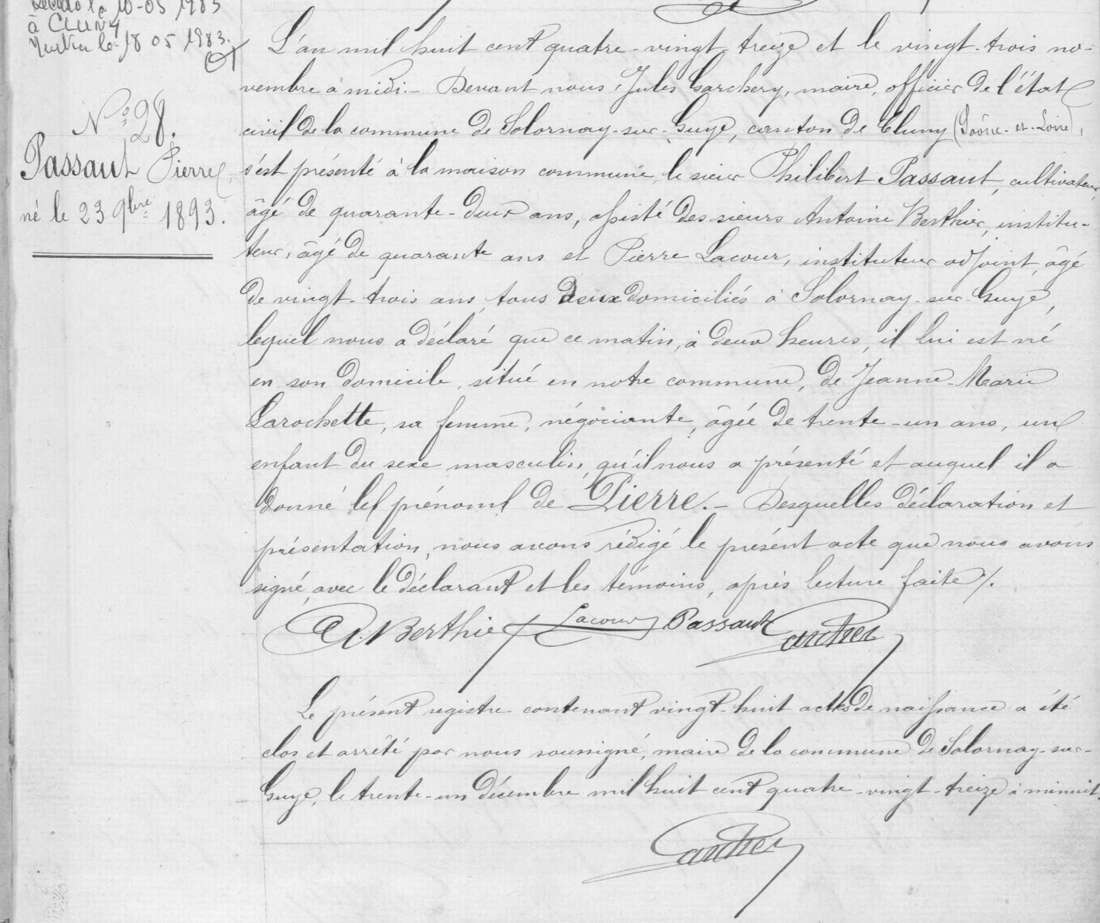 Décédé le 10-05 1983
à CLUNY
le 18 05 1983.
N° 28.
Passaut Pierre
né le 23 9bre 1893.
L'an mil huit cent quatre-vingt treize et le vingt-trois no-
vembre à midi. – Devant nous Jules Larchery, maire, officier de l'état
civil de la commune de Salornay-sur-Guye, canton de Cluny (Saône-et-Loire),
s'est présenté à la maison commune, le sieur Philibert Passaut, cultivateur,
âgé de quarante-deux ans, assisté des sieurs Antoine Berthier, institu-
teur, âgé de quarante ans et Pierre Lacour, instituteur adjoint, âgé
de vingt-trois ans, tous deux domiciliés à Salornay-sur-Guye,
lequel nous a déclaré que ce matin, à deux heures, il lui est né
en son domicile, situé en notre commune, de Jeanne-Marie
Larochette, sa femme, négociante, âgée de trente-un ans, un
enfant du sexe masculin, qu'il nous a présenté et auquel il a
donné les prénoms de Pierre. – Desquelles déclaration et
présentation, nous avons rédigé le présent acte que nous avons
signé, avec le déclarant et les témoins, après lecture faite /.
A. Berthier Lacour Passaut
Le présent registre contenant vingt-huit actes de naissance a été
clos et arrêté par nous soussigné, maire de la commune de Salornay-sur-
Guye, le trente-un décembre mil huit cent quatre-vingt-treize à minuit.